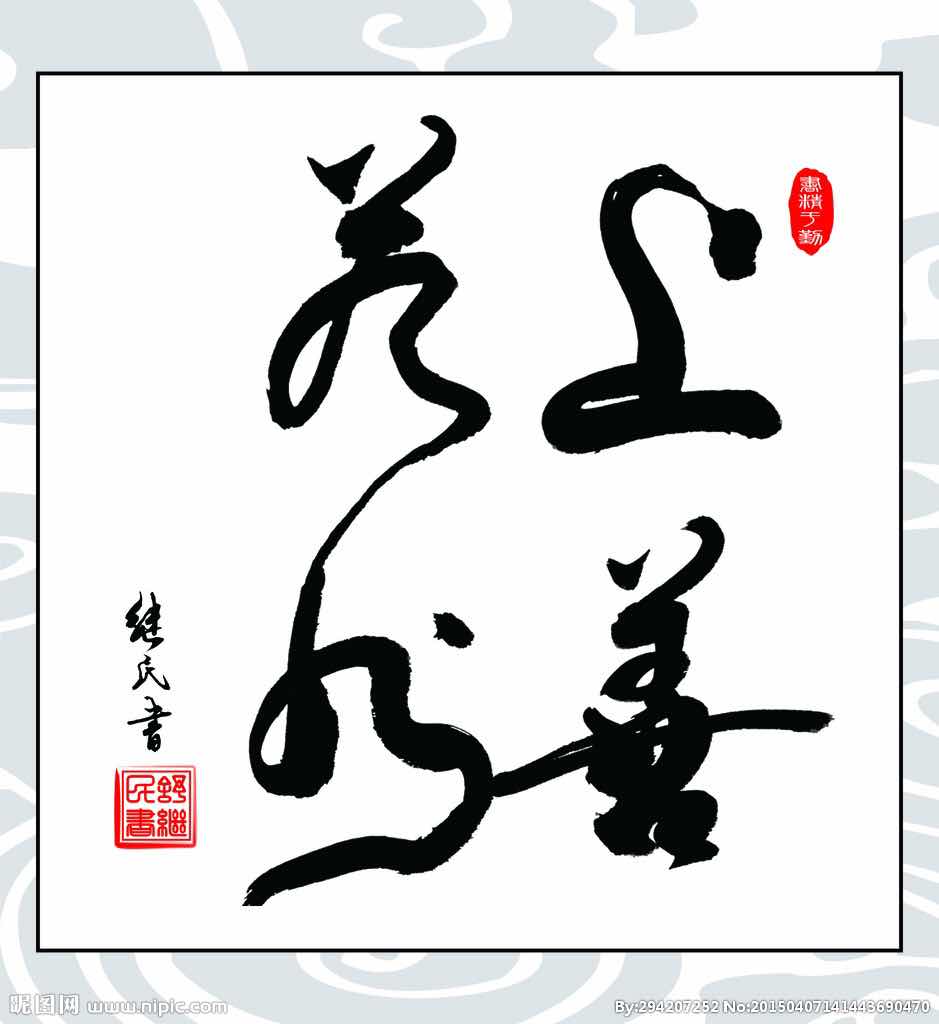 書精于勤
上善
若水
继民书
舒繼
民書
昵图网 www.nipic.com
By:294207252 No:20150407141443690470